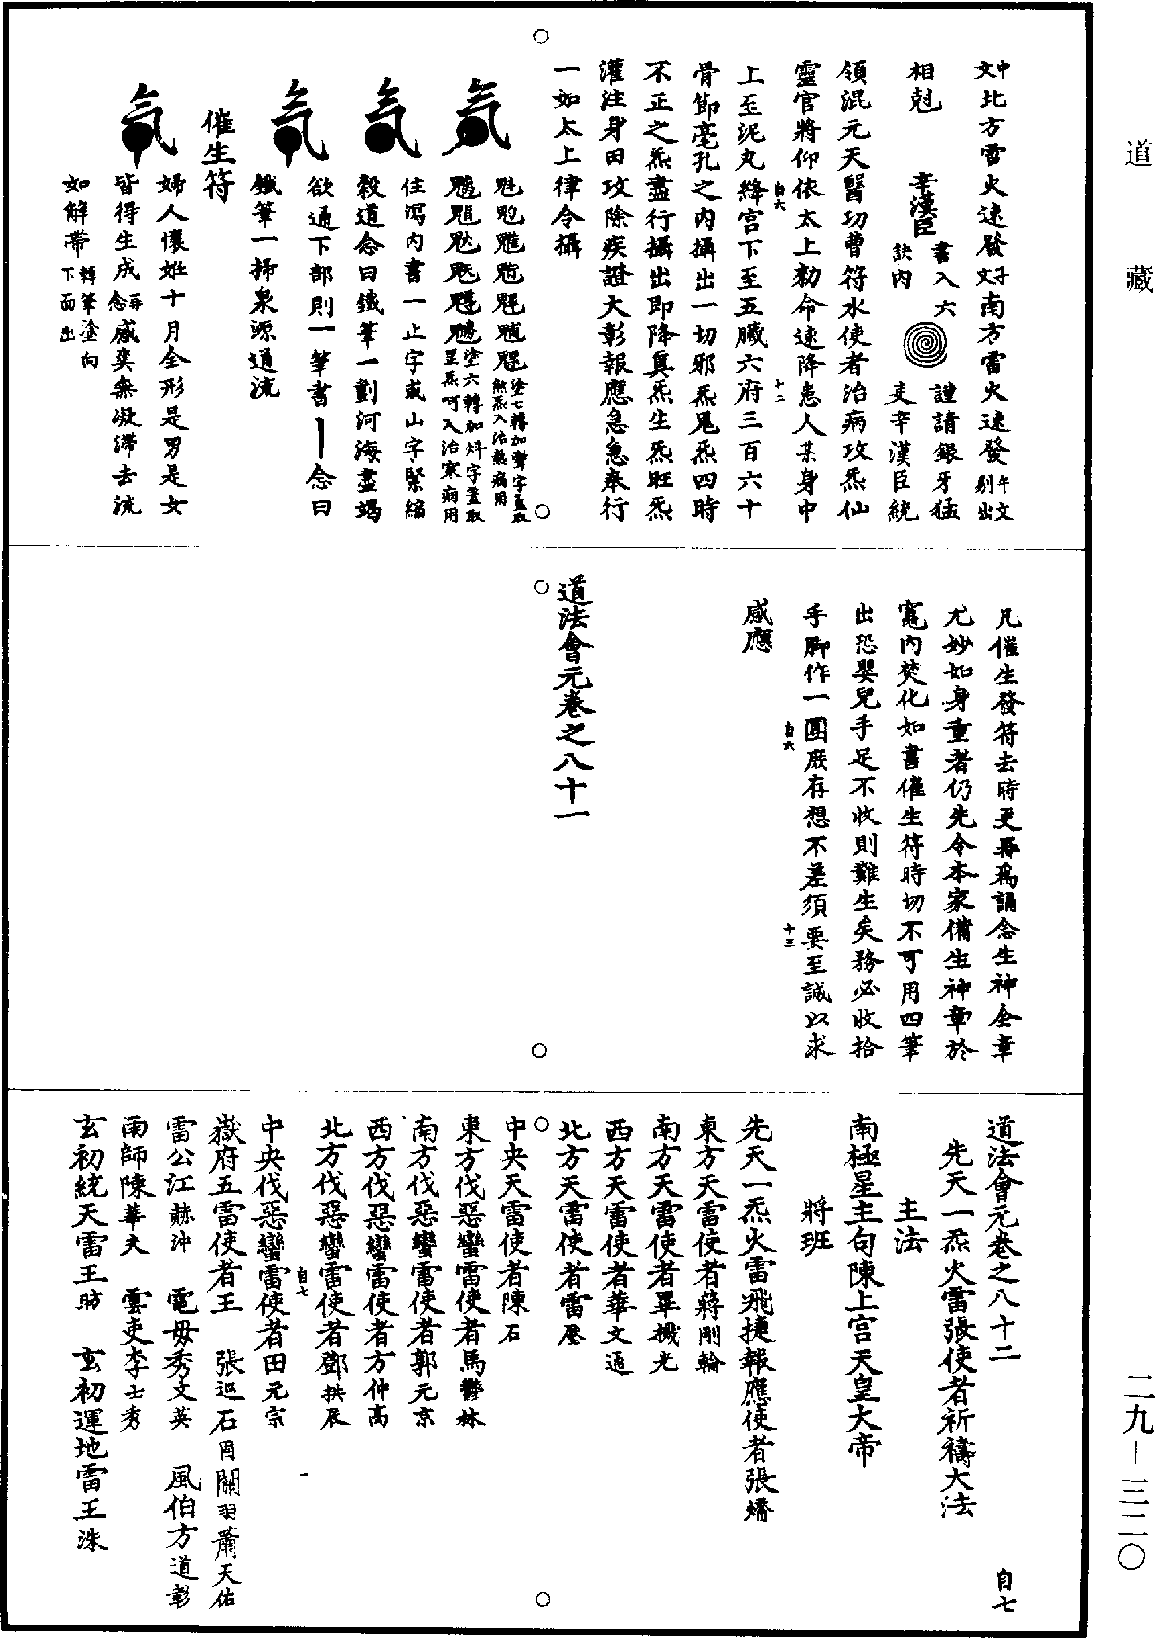 道藏
中文北方雷火速發子文南方雷火速發午文剔出
相尅 辛漢臣書入六訣內 謹請銀牙猛吏辛漢臣統
領混元天醫功曹符水使者治病攻炁仙
靈官將仰依太上勅命速降患人某身中
自六 十二
上至泥丸絳宮下至五臟六府三百六十
骨節毫孔之內攝出一切邪炁鬼炁四時
不正之炁盡行攝出即降真炁生炁旺炁
灌注身田攻除疾證大彰報應急急奉行
一如太上律令攝
塗七轉加聻字蓋取煞炁入治熱病用
塗六轉加炓字蓋取罡炁呵入治寒病用
住瀉內書一止字或山字緊縮
穀道念曰鐵筆一劃河海盡竭
欲通下部則一筆書丨念曰
鐵筆一掃泉源通流
催生符
婦人懷姙十月全形是男是女
皆得生成再念感奭無凝滯去流
如解帶轉筆塗向下面出
凡催生發符去時更再爲誦念生神金章
尤妙如身重者仍先令本家備生神章於
竈內焚化如書催生符時切不可用四筆
出恐嬰兒手足不收則難生矣務必收拾
手脚作一團庶存想不差須要至誠以求
自六 十三
感應
道法會元卷之八十一
道法會元卷之八十二 自七
先天一炁火雷張使者祈禱大法
主法
南極星主句陳上宮天皇大帝
將班
先天一炁火雷飛捷報應使者張燐
東方天雷使者蔣剛輪
南方天雷使者畢機光
西方天雷使者華文通
北方天雷使者雷壓
中央天雷使者陳石
東方伐惡蠻雷使者馬鬱林
南方伐惡蠻雷使者郭元京
西方伐惡蠻雷使者方仲高
北方伐惡蠻雷使者鄧拱辰
自七 一
中央伐惡蠻雷使者田元宗
嶽府五雷使者王 張巡石 關羽蕭天佑
雷公江赫沖 電母秀文英 風伯方道彰
雨師陳華夫 雲吏李士秀
玄初統天雷王昉 玄初運地雷王洙
二九—三二〇